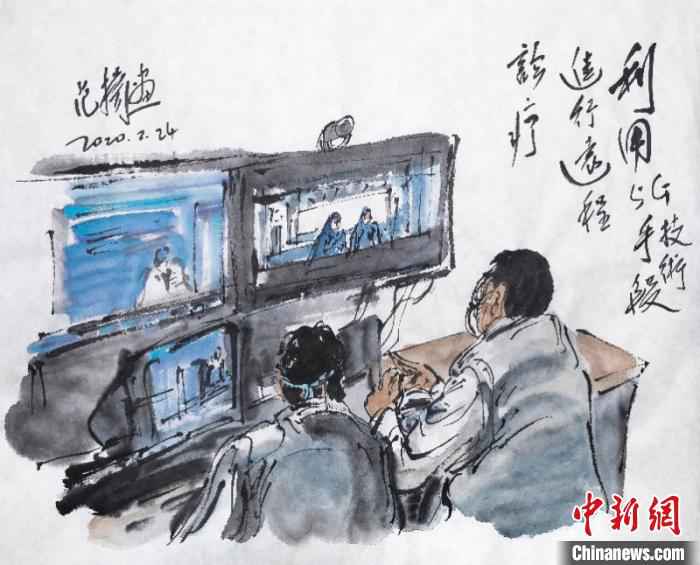 利用5G技術手段
進行遠程
診疗
范揚畫
2020.2.24
中新网
Chinanews.com